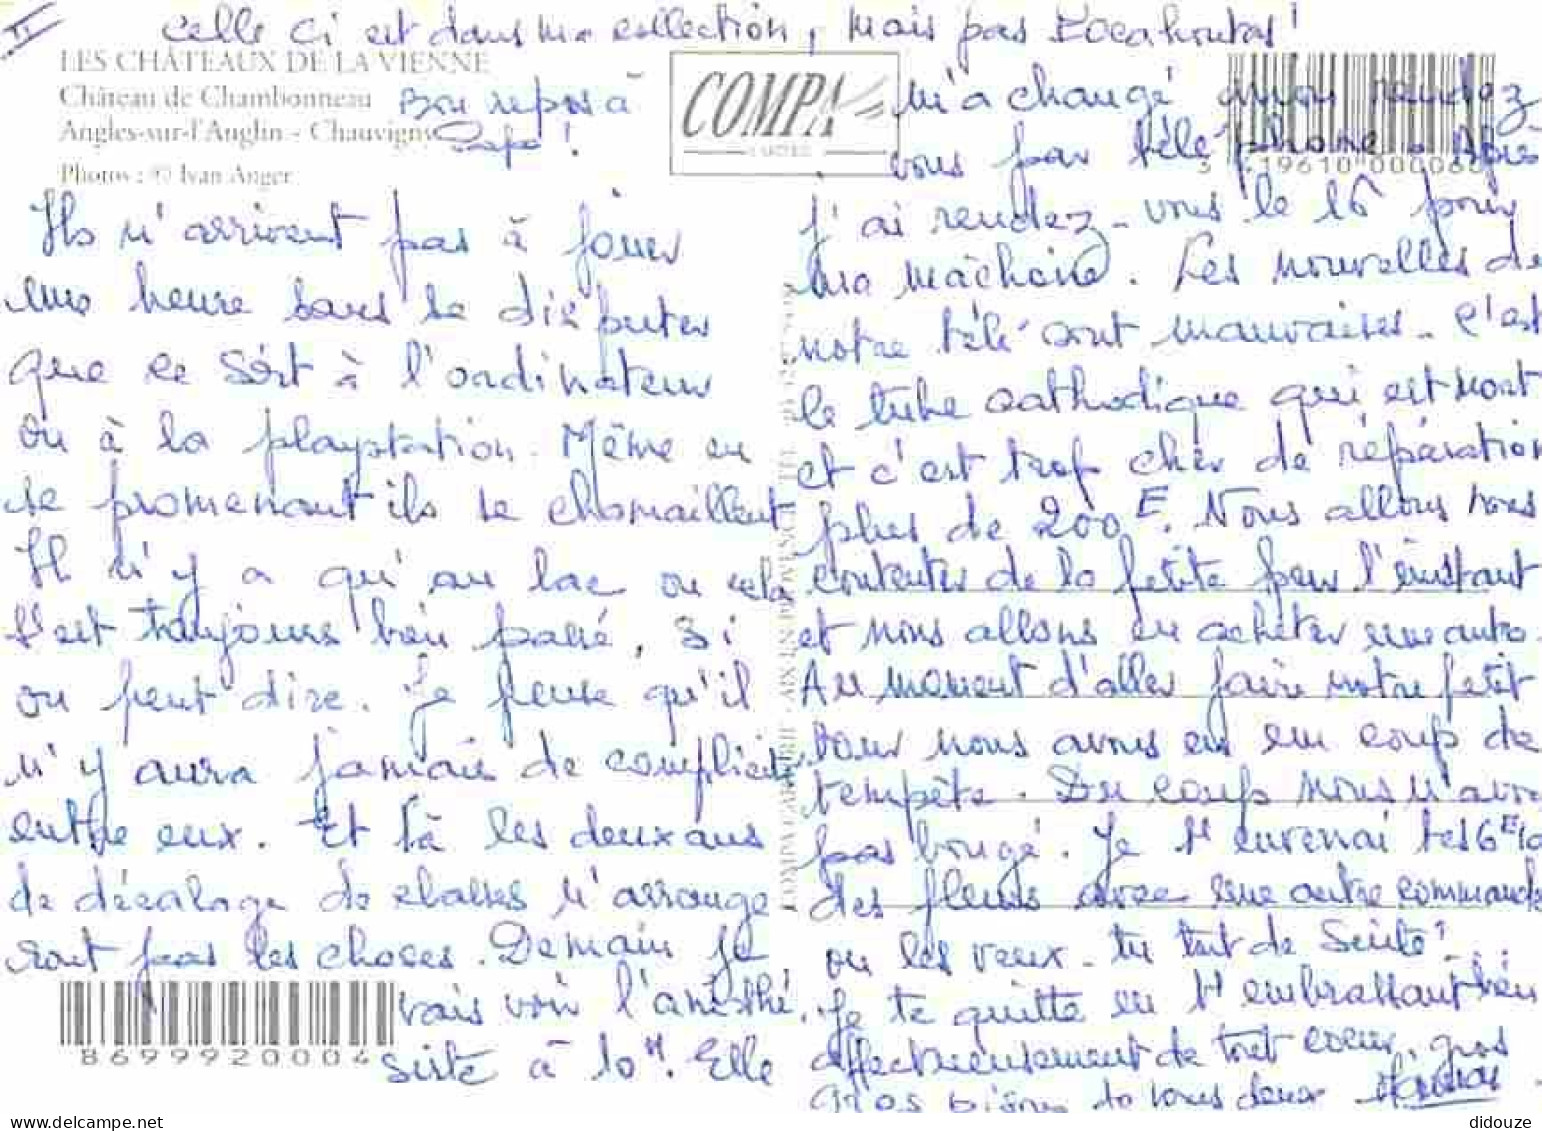 II
Celle ci est dans ma collection, mais pas Pocahontas !
LES CHÂTEAUX DE LA VIENNE
Château de Chambonneau
Angles-sur-l'Anglin - Chauvigny
Photos : © Ivan Anger
Bon repos à
Papa !
COMPA
CARTERIE
Ils n'arrivent pas à jouer
une heure sans se disputer
que ce soit à l'ordinateur
ou à la playstation. Même en
se promenant ils se chamaillent
Il n'y a qu'au lac ou cela
s'est toujours bien passé, si
on peut dire. Je pense qu'il
n'y aura jamais de complicité
entre eux. Et là les deux ans
de décalage de classes n'arrange
ront pas les choses. Demain je
vais voir l'anesthé
siste à 10H. Elle
8699920004
m'a changé mon rendez
vous par téléphone. Après
3 419610 00006
j'ai rendez-vous le 16 pour
ma mâchoire. Les nouvelles de
notre télé sont mauvaises. C'est
le tube cathodique qui est mort
et c'est trop cher de réparation
plus de 200E. Nous allons nous
contenter de la petite pour l'instant
et nous allons en acheter une autre.
Au moment d'aller faire notre petit
tour nous avons eu un coup de
tempête. Du coup nous n'avons
pas bougé. Je t'enverrai tes 6E10
des fleurs avec une autre commande
ou les veux-tu tout de suite ? ...
Je te quitte en t'embrassant bien
affectueusement de tout coeur, gros
gros bisous to vous deux
didouze